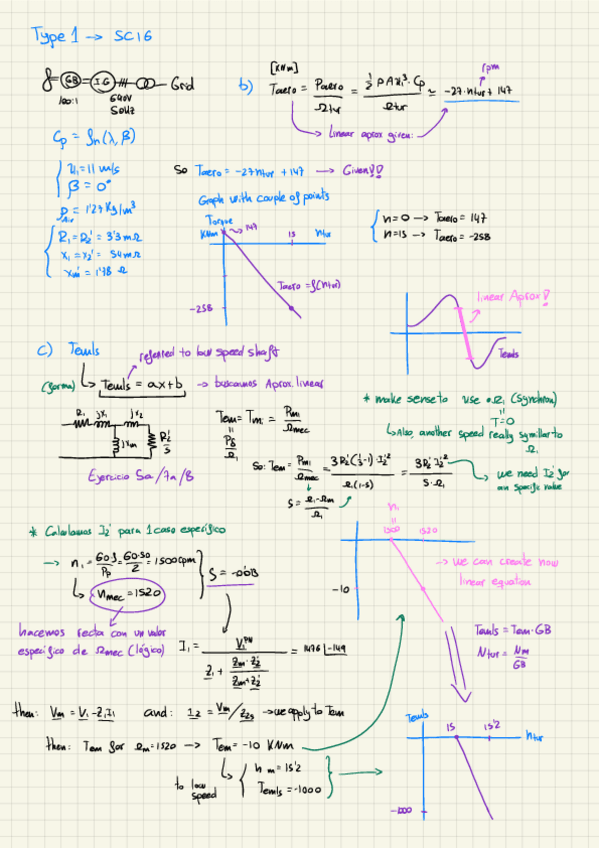 Type 1 → SCIG
GB I.G Grid
100:1 690V
50Hz
b) [KNm]
Taero = Paero/Ωtur = ½ρAv1³·Cp/Ωtur ≃ -27·ntur + 147
rpm
Linear aprox given:
Cp = fn(λ, β)
v1 = 11 m/s
β = 0°
ρAir = 1'27 Kg/m³
R1 = R2' = 3'3 mΩ
X1 = X2' = 54 mΩ
Xm' = 1'78 Ω
So Taero = -27ntur + 147 → Given!
Graph with couple of points
n=0 → Taero = 147
n=15 → Taero = -258
Torque
KNm
147
15
ntur
Taero = f(ntur)
-258
linear Aprox!
Temls
c) Temls
referred to low speed shaft
(forma) Temls = ax+b → buscamos Aprox. linear
R1 jX1 jX2
jXm R2'/s
Ejercicio 5a/7a/8
Tem = Tmi = Pmi/Ωmec
Pδ/Ω1
So: Tem = Pmi/Ωmec = 3R2'(1/s-1)·I2'²/Ω1(1-s) = 3R2'I2'²/S·Ω1
S = Ω1-Ωm/Ω1
* make sense to use Ω1 (synchron)
T=0
Also, another speed really symillar to
Ω1
we need I2' for
an specific value
* Calculamos I2' para 1 caso específico
→ n1 = 60·f/Pp = 60·50/2 = 1500rpm
nmec = 1520
S = -0'013
hacemos recta con un valor
específico de Ωmec (lógico)
I1 = V1PN/Z1 + Zm·Z2'/Zm+Z2' = 1476 ∠-149
n1
1500 1520
-10
→ we can create now
linear equation
Temls = Tem·GB
Ntur = Nm/GB
then: Vm = V1 - Z1I1 and: I2 = Vm/Z2s → we apply to Tem
then: Tem for Ωm=1520 → Tem = -10 KNm
to low
speed
nm = 15'2
Temls = -1000
Temls
15 15'2 ntur
-1000